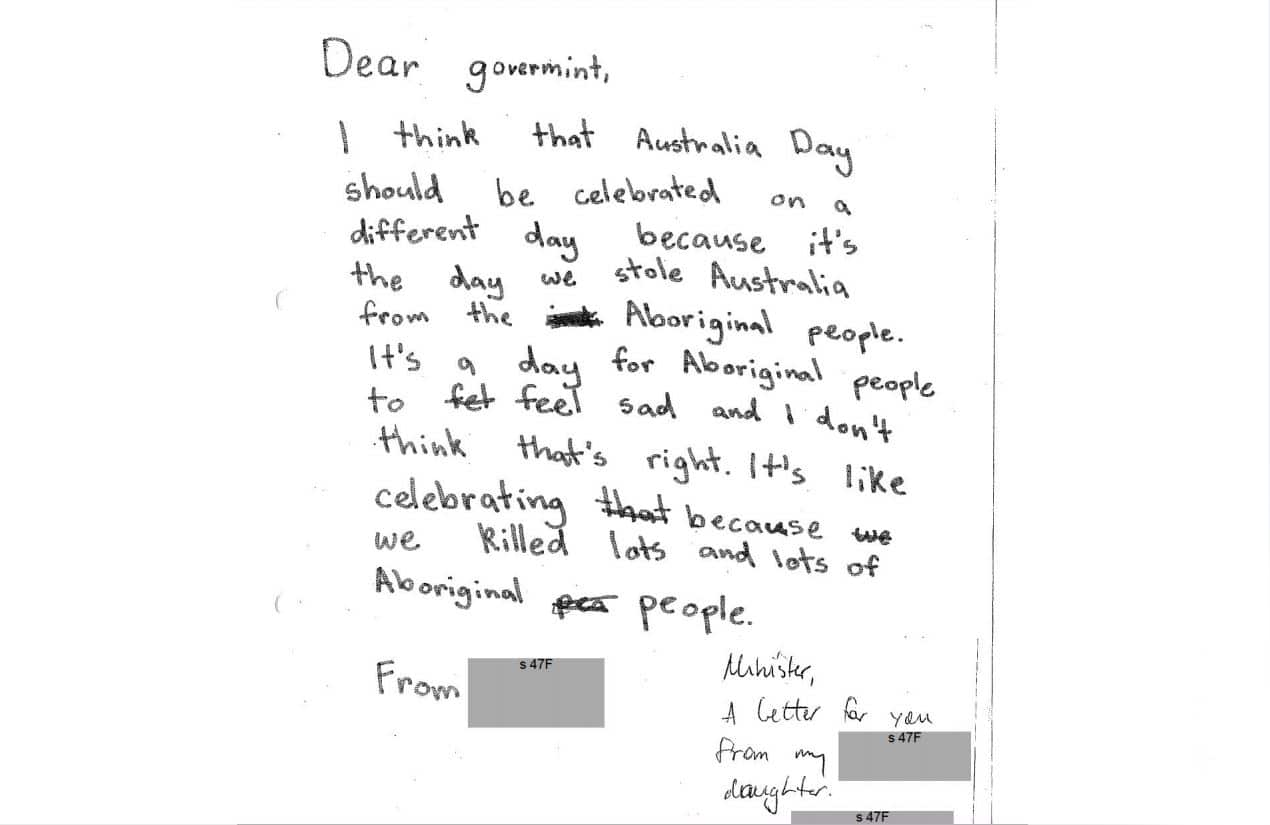 Dear govermint,
I think that Australia Day
should be celebrated on a
different day because it's
the day we stole Australia
from the Aboriginal people.
It's a day for Aboriginal people
to fet feel sad and I don't
think that's right. It's like
celebrating that because we
we killed lots and lots of
Aboriginal pea people.
From s 47F
Minister,
A letter for you
from my s 47F
daughter.
s 47F